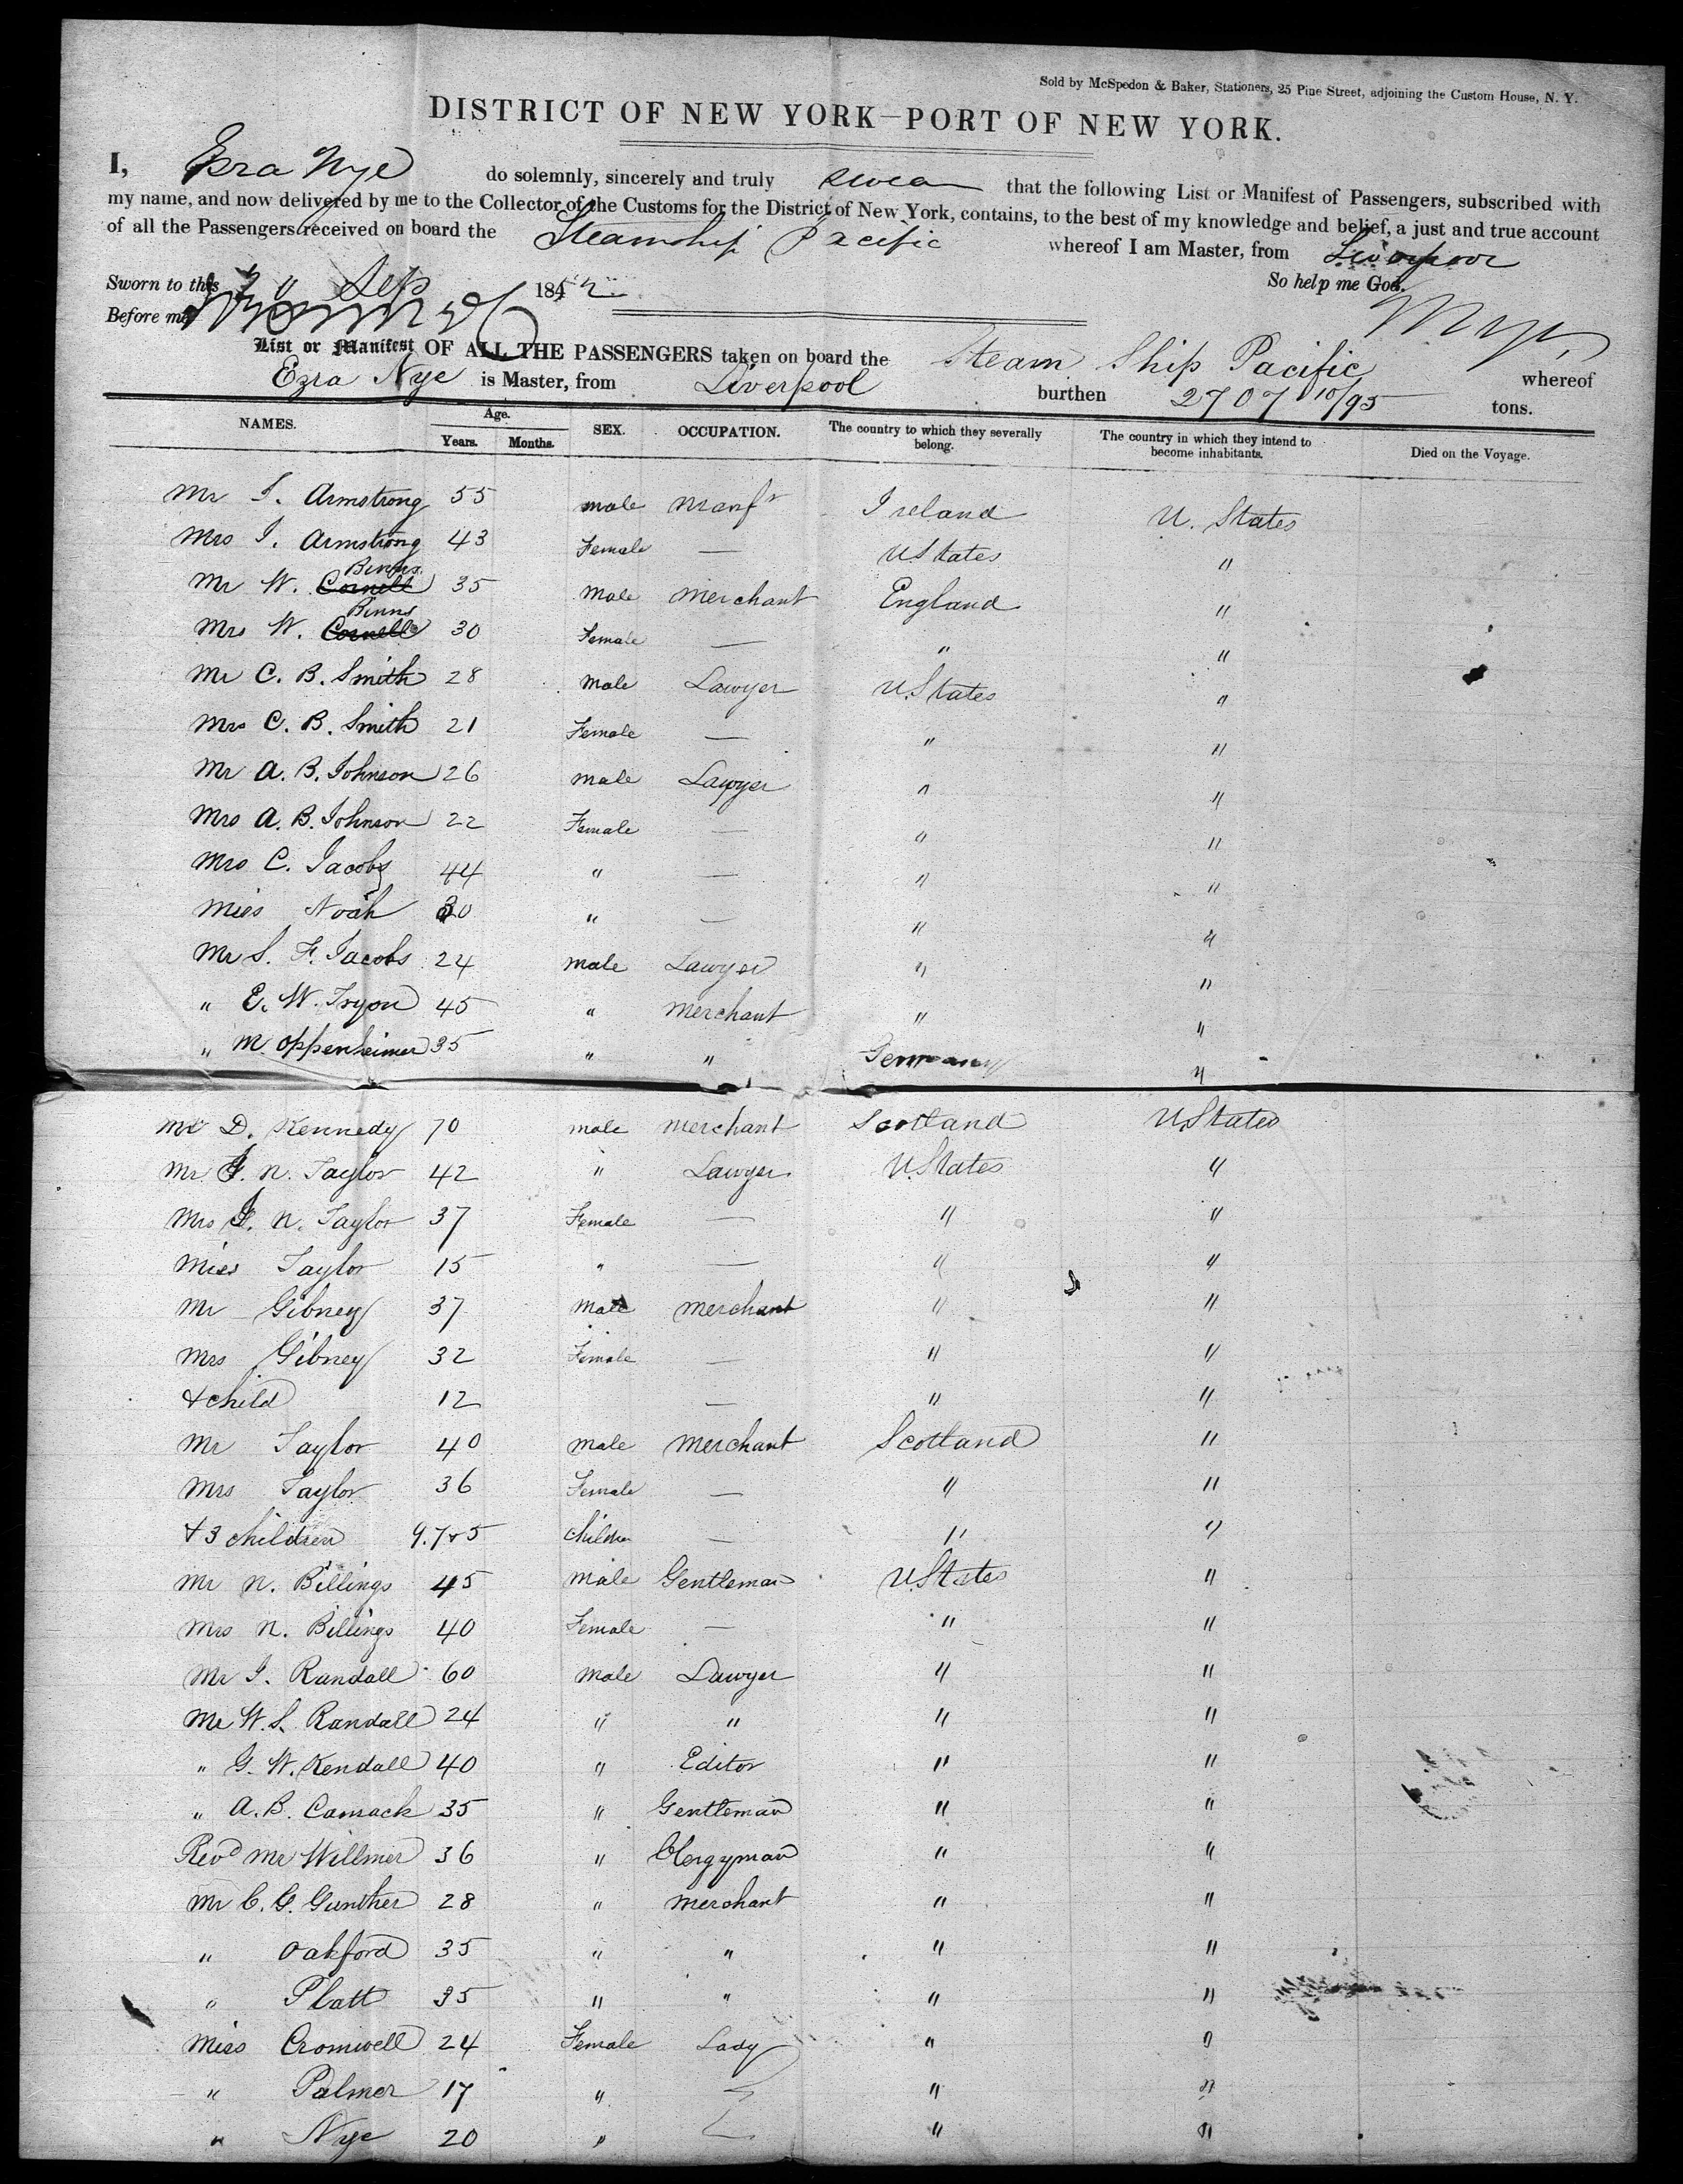 Sold by McSpedon & Baker, Stationers, 25 Pine Street, adjoining the Custom House, N. Y.
DISTRICT OF NEW YORK—PORT OF NEW YORK.
I, Ezra Nye do solemnly, sincerely and truly swear that the following List or Manifest of Passengers, subscribed with
my name, and now delivered by me to the Collector of the Customs for the District of New York, contains, to the best of my knowledge and belief, a just and true account
of all the Passengers received on board the Steamship Pacific whereof I am Master, from Liverpool
Sworn to this Sep 1852 So help me God.
Before me Nye
List or Manifest OF ALL THE PASSENGERS taken on board the Steam Ship Pacific whereof
Ezra Nye is Master, from Liverpool burthen 2707 10/95 tons.
NAMES. Age. Years. Months. SEX. OCCUPATION. The country to which they severally belong. The country in which they intend to become inhabitants. Died on the Voyage.
Mr I. Armstrong 55 male Manfr Ireland U. States
Mrs I. Armstrong 43 Female — U States "
Mr W. Cornell Binns 35 Male Merchant England "
Mrs W. Cornell Binns 30 Female — " "
Mr C. B. Smith 28 Male Lawyer U. States "
Mrs C. B. Smith 21 Female — " "
Mr A. B. Johnson 26 male Lawyer " "
Mrs A. B. Johnson 22 Female — " "
Mrs C. Jacobs 44 " — " "
Miss Noah 30 " — " "
Mr S. F. Jacobs 24 Male Lawyer " "
" E. W. Tryon 45 " Merchant " "
" M. Oppenheimer 35 " " Germany "
Mr D. Kennedy 70 male Merchant Scotland U. States
Mr J. N. Taylor 42 " Lawyer U. States "
Mrs J. N. Taylor 37 Female — " "
Miss Taylor 15 " — " "
Mr Gibney 37 Male Merchant " "
Mrs Gibney 32 Female — " "
& child 12 — " "
Mr Taylor 40 Male Merchant Scotland "
Mrs Taylor 36 Female — " "
& 3 children 9. 7 & 5 Children — " "
Mr N. Billings 45 Male Gentleman U. States "
Mrs N. Billings 40 Female — " "
Mr J. Randall 60 Male Lawyer " "
Mr W. S. Randall 24 " " " "
" G. W. Kendall 40 " Editor " "
" A. B. Camack 35 " Gentleman " "
Revd Mr Willmer 36 " Clergyman " "
Mr C. G. Gunther 28 " Merchant " "
" Oakford 35 " " " "
" Platt 35 " " " "
Miss Cromwell 24 Female Lady " "
" Palmer 17 " " "
" Nye 20 " " "